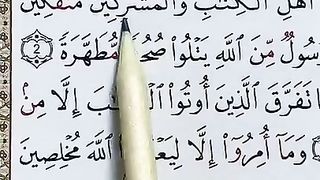 أَهْلِ الْكِتَٰبِ وَالْمُشْرِكِينَ مُنفَكِّينَ
رَسُولٌ مِّنَ اللَّهِ يَتْلُوا صُحُفًا مُّطَهَّرَةً ٢
تَفَرَّقَ الَّذِينَ أُوتُوا إِلَّا مِنۢ
وَمَآ أُمِرُوٓا إِلَّا اللَّهَ مُخْلِصِينَ